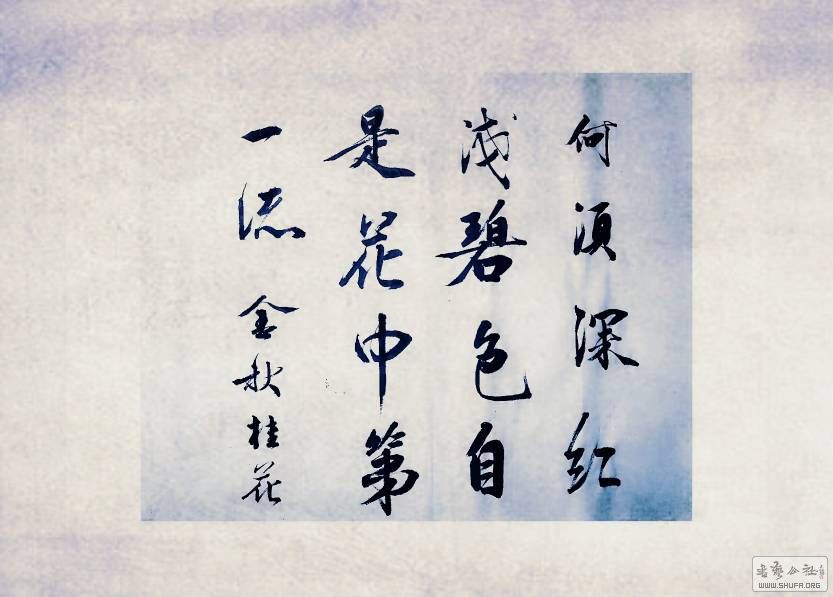 何须深红
浅碧色自
是花中第
一流 金秋桂花
书艺公社
WWW.SHUFA.ORG